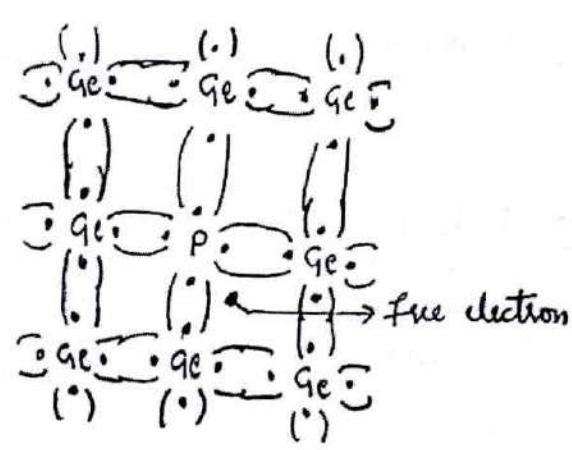 Ge Ge Ge
Ge P Ge
free electron
Ge Ge Ge